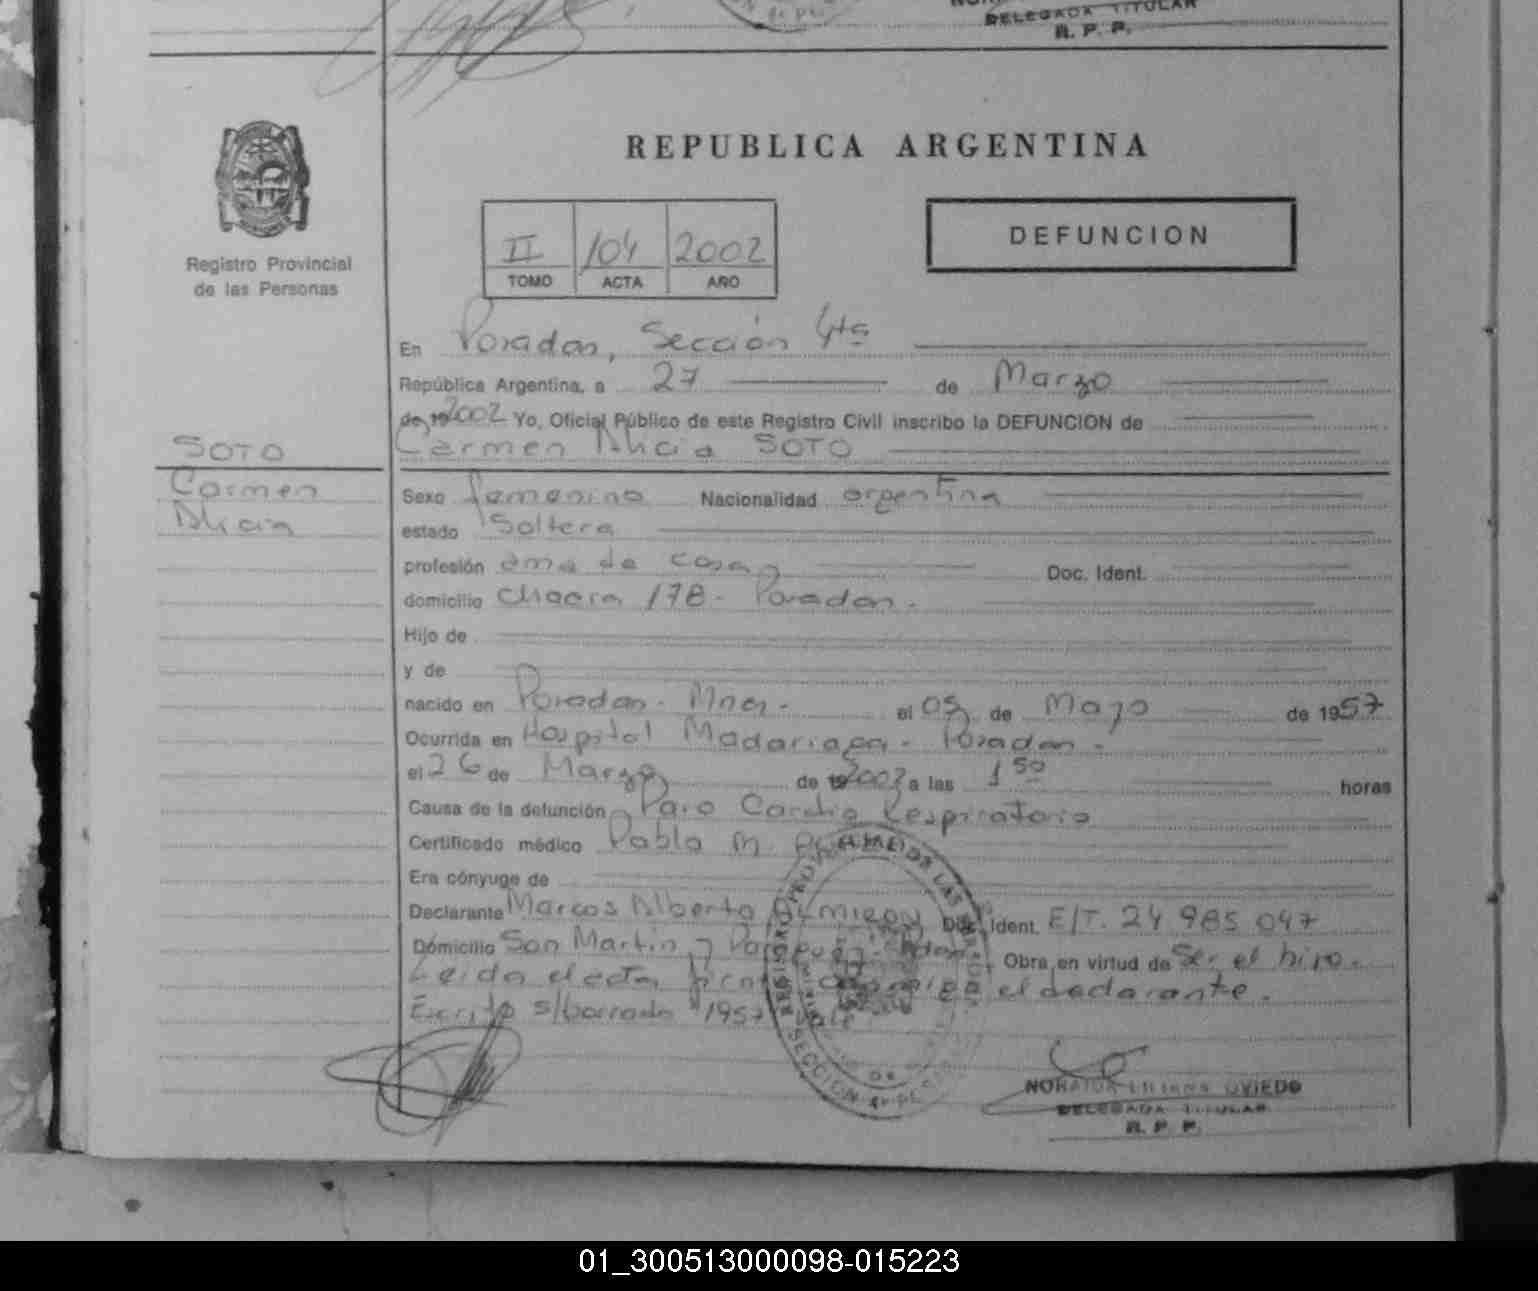 DELEGADA TITULAR
R. P. P.
REPUBLICA ARGENTINA
II 104 2002
TOMO ACTA AÑO
DEFUNCION
Registro Provincial
de las Personas
En Posadas, Sección 4ta
República Argentina, a 27 de Marzo
de 19 2002 Yo, Oficial Público de este Registro Civil inscribo la DEFUNCION de
Carmen Alicia SOTO
SOTO
Carmen
Alicia
Sexo femenino Nacionalidad argentina
estado Soltera
profesión ama de casa Doc. Ident.
domicilio Chacra 178 - Posadas.
Hijo de
y de
nacido en Posadas - Mnes - el 05 de Mayo de 1957
Ocurrida en Hospital Madariaga - Posadas -
el 26 de Marzo de 19 2002 a las 1 50 horas
Causa de la defunción Paro Cardio Respiratorio
Certificado médico Pablo M.
Era cónyuge de
Declarante Marcos Alberto ALMIRON Doc. Ident. E/T. 24 985 047
Domicilio San Martin y Obra en virtud de Ser el hijo.
Leida el acta firma el declarante.
Escrito s/borrado "1957" Vale
NORAIDA LILIANA OVIEDO
DELEGADA TITULAR
R. P. P.
01_300513000098-015223